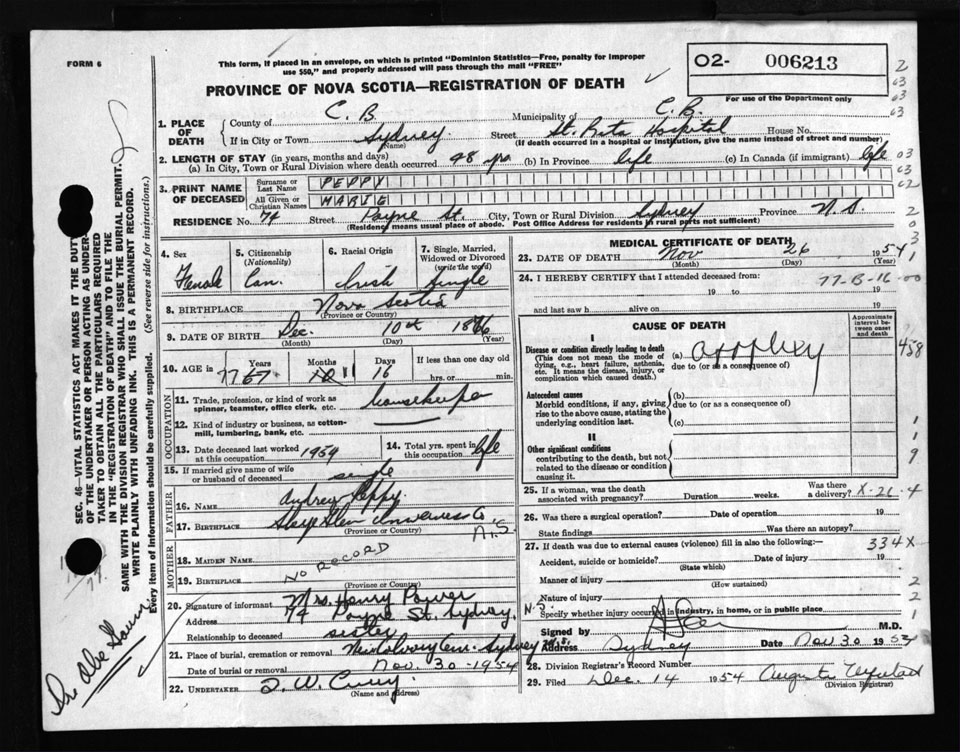 FORM 6
This form, if placed in an envelope, on which is printed "Dominion Statistics—Free, penalty for improper
use $50," and properly addressed will pass through the mail "FREE"
O2- 006213
For use of the Department only
PROVINCE OF NOVA SCOTIA—REGISTRATION OF DEATH
1. PLACE OF DEATH
County of C. B. Municipality of C. B.
If in City or Town Sydney (Name) Street St. Rita Hospital House No.
(If death occurred in a hospital or institution, give the name instead of street and number)
2. LENGTH OF STAY (in years, months and days)
(a) In City, Town or Rural Division where death occurred 48 yrs (b) In Province life (c) In Canada (if immigrant) life
3. PRINT NAME OF DECEASED
Surname or Last Name PEPPY
All Given or Christian Names MARIE
RESIDENCE No. 74 Street Payne St. City, Town or Rural Division Sydney Province N. S.
(Residence means usual place of abode. Post Office Address for residents in rural parts not sufficient)
4. Sex Female
5. Citizenship (Nationality) Can.
6. Racial Origin Irish
7. Single, Married, Widowed or Divorced (write the word) Single
8. BIRTHPLACE Nova Scotia
(Province or Country)
9. DATE OF BIRTH Dec. 10th
(Month) (Day) (Year)
10. AGE in Years Months Days If less than one day old
77 67 10 11 16 hrs. or min.
OCCUPATION
11. Trade, profession, or kind of work as spinner, teamster, office clerk, etc. housekeeper
12. Kind of industry or business, as cotton-mill, lumbering, bank, etc.
13. Date deceased last worked at this occupation 1954
14. Total yrs. spent in this occupation life
15. If married give name of wife or husband of deceased single
FATHER
16. Name Peppy
17. Birthplace Glen Inverness Co N.S.
(Province or Country)
MOTHER
18. Maiden Name
NO RECORD
19. Birthplace
(Province or Country)
20. Signature of informant Mrs. Henry Power
Address 74 Payne St. Sydney, N.S.
Relationship to deceased sister
21. Place of burial, cremation or removal Cem. Sydney N.S.
Date of burial or removal Nov. 30 - 1954
22. UNDERTAKER T. W. Curry
(Name and address)
MEDICAL CERTIFICATE OF DEATH
23. DATE OF DEATH Nov 26 1954
(Month) (Day)
24. I HEREBY CERTIFY that I attended deceased from
19 to 19
and last saw h alive on 19
77-B-16-00
CAUSE OF DEATH
Approximate interval between onset and death
I
Disease or condition directly leading to death
This does not mean the mode of dying, e.g., heart failure, asthenia, etc. It means the disease, injury, or complication which caused death.)
(a) apoplexy
due to (or as a consequence of)
Antecedent causes
Morbid conditions, if any, giving rise to the above cause, stating the underlying condition last.
(b)
due to (or as a consequence of)
(c)
II
Other significant conditions
contributing to the death, but not related to the disease or condition causing it.
25. If a woman, was the death associated with pregnancy? Duration weeks. Was there a delivery? X-26-4
26. Was there a surgical operation? Date of operation 19
State findings Was there an autopsy?
27. If death was due to external causes (violence) fill in also the following:— 334X
Accident, suicide or homicide? Date of injury 19
(State which)
Manner of injury
(How sustained)
Nature of injury
Specify whether injury occurred in industry, in home, or in public place
Signed by M.D.
Address Sydney Date Nov 30 1954
28. Division Registrar's Record Number
29. Filed Dec. 14 1954
(Division Registrar)
SEC. 46—VITAL STATISTICS ACT MAKES IT THE DUTY
OF THE UNDERTAKER OR PERSON ACTING AS UNDER-
TAKER TO OBTAIN ALL THE PARTICULARS REQUIRED
IN THE "REGISTRATION OF DEATH" AND TO FILE THE
SAME WITH THE DIVISION REGISTRAR WHO SHALL ISSUE THE BURIAL PERMIT.
WRITE PLAINLY WITH UNFADING INK. THIS IS A PERMANENT RECORD.
Every item of information should be carefully supplied. (See reverse side for instructions.)